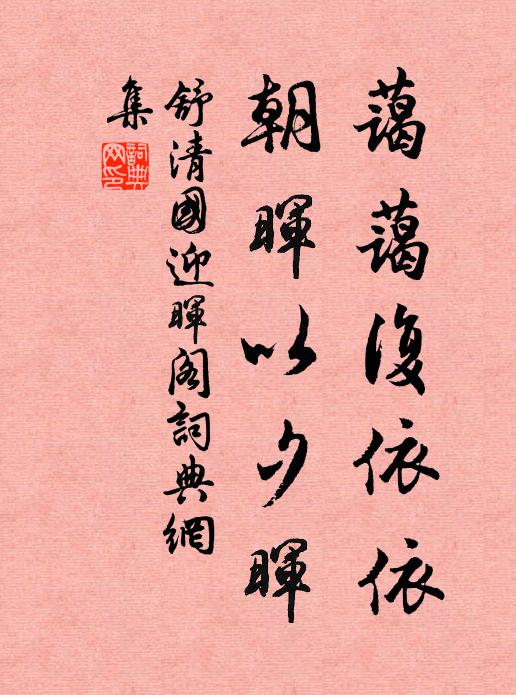 藹藹復依依
朝暉以夕暉
舒清國迎暉閣詞典網
集
詞典網印